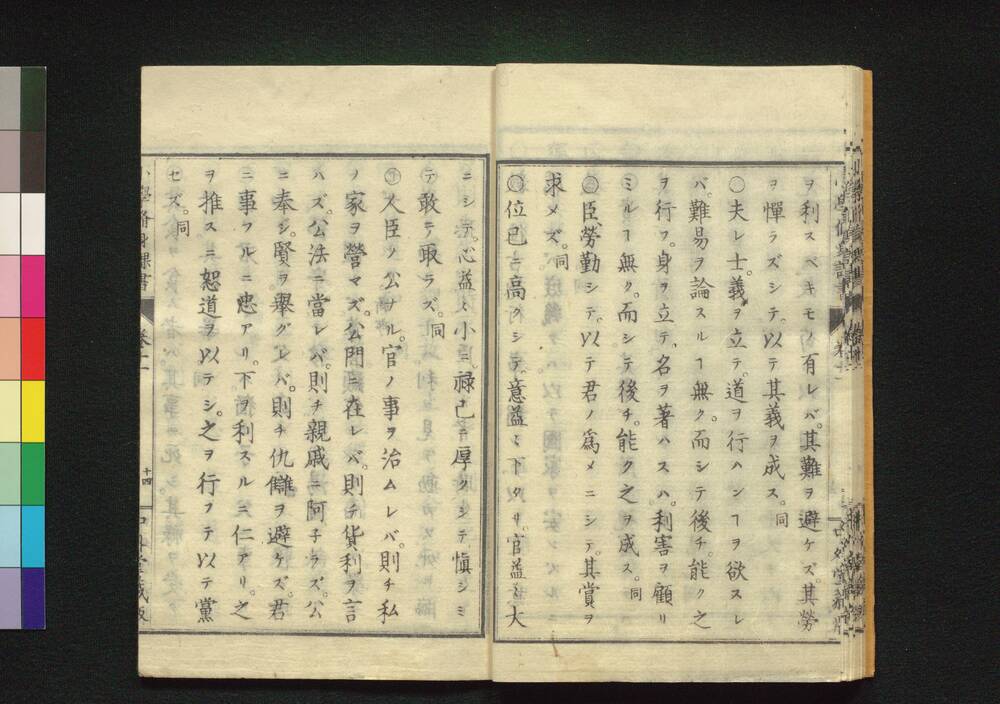 ヲ利スベキモノ有レバ。其難ヲ避ケズ。其勞
ヲ憚ラズシテ。以テ其義ヲ成ス。同
○夫レ士。義ヲ立テ。道ヲ行ハンヿヲ欲スレ
バ。難易ヲ論スルヿ無ク。而シテ後チ。能ク之
ヲ行フ。身ヲ立テ。名ヲ著ハスハ。利害ヲ顧リ
ミルヿ無ク。而シテ後チ。能ク之ヲ成ス。同
○臣勞勤シテ。以テ君ノ爲メニシテ。其賞ヲ
求メズ。同
○位已ニ高クシテ。意益々下タリ。官益々大
ニシテ。心益々小ニ。禄已ニ厚クシテ。愼シミ
テ敢テ取ラズ。同
○人臣ノ公ナル。官ノ事ヲ治ムレバ。則チ私
ノ家ヲ營マズ。公門ニ在レバ。則チ貨利ヲ言
ハズ。公法ニ當レバ。則チ親戚ニ阿子ラズ。公
ニ奉シ。賢ヲ舉グレバ。則チ仇讎ヲ避ケズ。君
ニ事フルニ忠アリ。下ヲ利スルニ仁アリ。之
ヲ推スニ恕道ヲ以テシ。之ヲ行フテ以テ黨
セズ。同
小學脩身課書
卷十二
十四